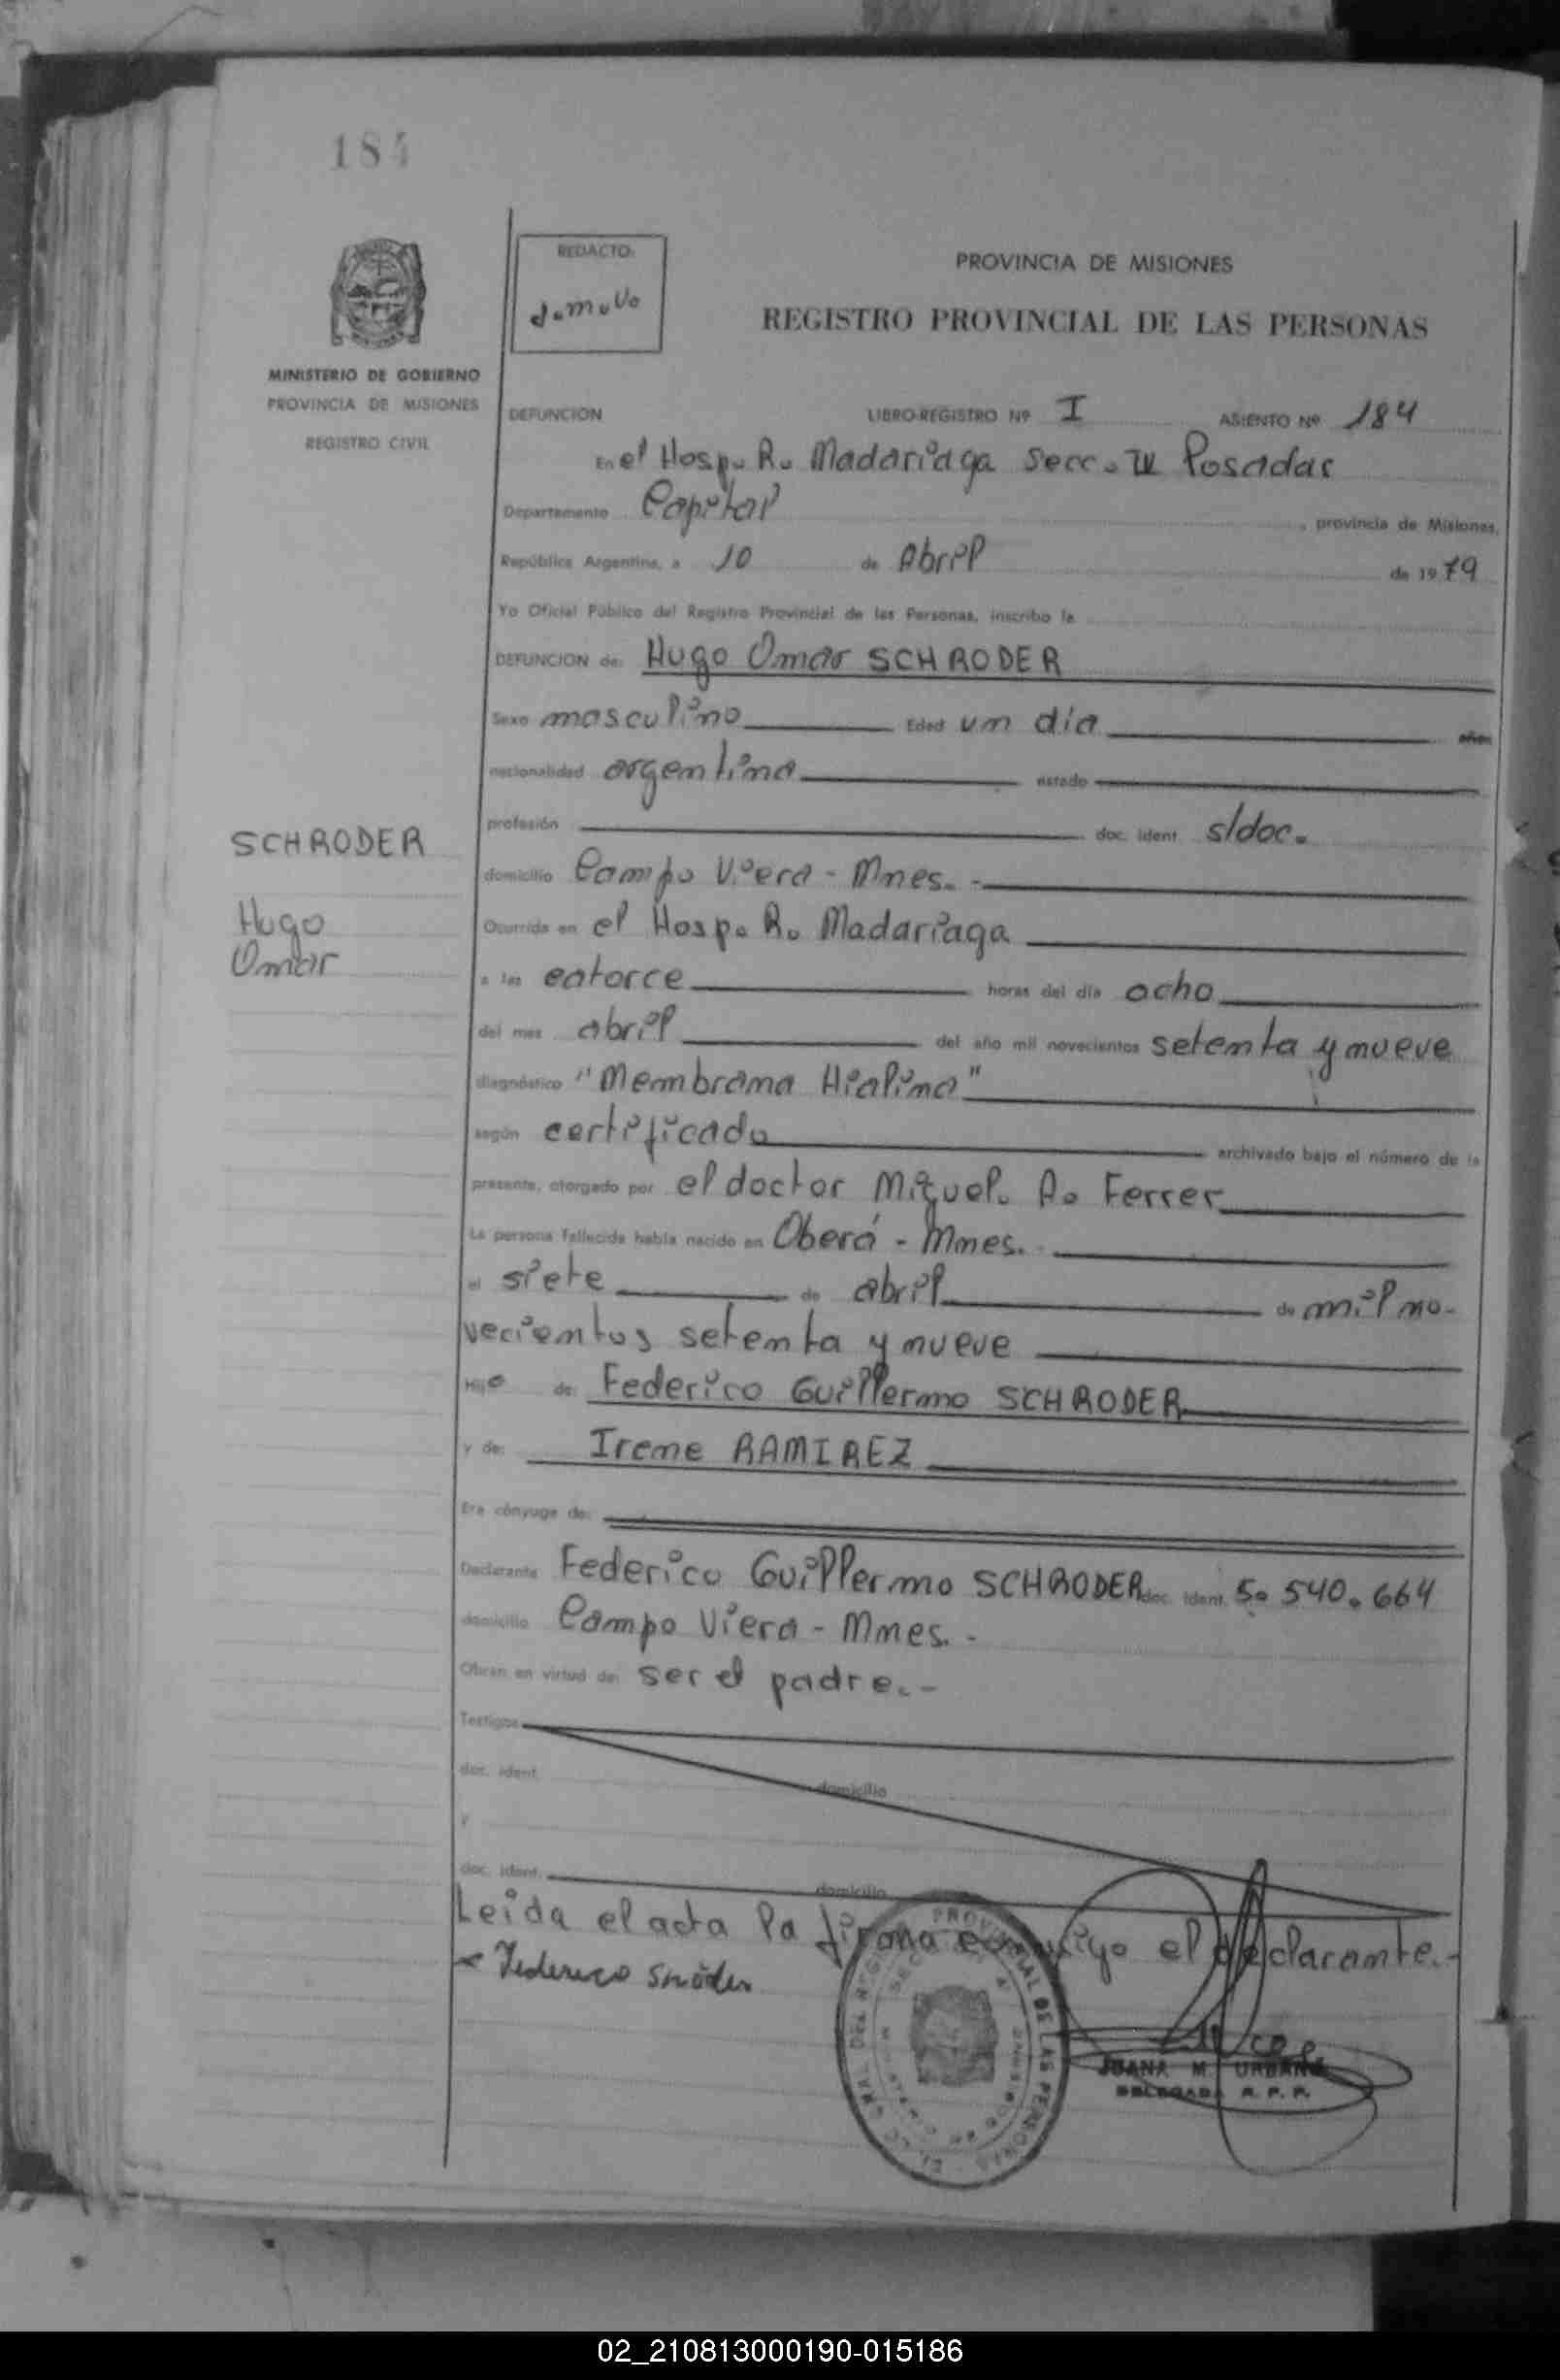 184
REDACTO:
J.M.U.
PROVINCIA DE MISIONES
REGISTRO PROVINCIAL DE LAS PERSONAS
MINISTERIO DE GOBIERNO
PROVINCIA DE MISIONES
REGISTRO CIVIL
DEFUNCION LIBRO-REGISTRO Nº I ASIENTO Nº 184
En el Hosp. R. Madariaga Secc. IV Posadas
Departamento Capital, provincia de Misiones,
República Argentina, a 10 de Abril de 1979
Yo Oficial Público del Registro Provincial de las Personas, inscribo la
DEFUNCION de: Hugo Omar SCHRODER
Sexo masculino Edad un día años
nacionalidad argentina estado
profesión doc. ident. s/doc.
SCHRODER
Hugo
Omar
domicilio Campo Viera - Mnes. -
Ocurrida en el Hosp. R. Madariaga
a las catorce horas del día ocho
del mes abril del año mil novecientos setenta y nueve
diagnóstico "Membrana Hialina"
según certificado archivado bajo el número de la
presente, otorgado por el doctor Miguel. A. Ferrer
La persona fallecida había nacido en Oberá - Mnes. -
el siete de abril de mil no-
vecientos setenta y nueve
Hijo de: Federico Guillermo SCHRODER
y de: Irene RAMIREZ
Era cónyuge de:
Declarante Federico Guillermo SCHRODER doc. ident. 5. 540. 664
domicilio Campo Viera - Mnes. -
Obran en virtud de: ser el padre. -
Testigos
doc. ident. domicilio
y
doc. ident. domicilio
Leída el acta la firma conmigo el declarante. -
Federico Schröder
JUANA M. URBANO
DELEGADA R. P. P.
02_210813000190-015186